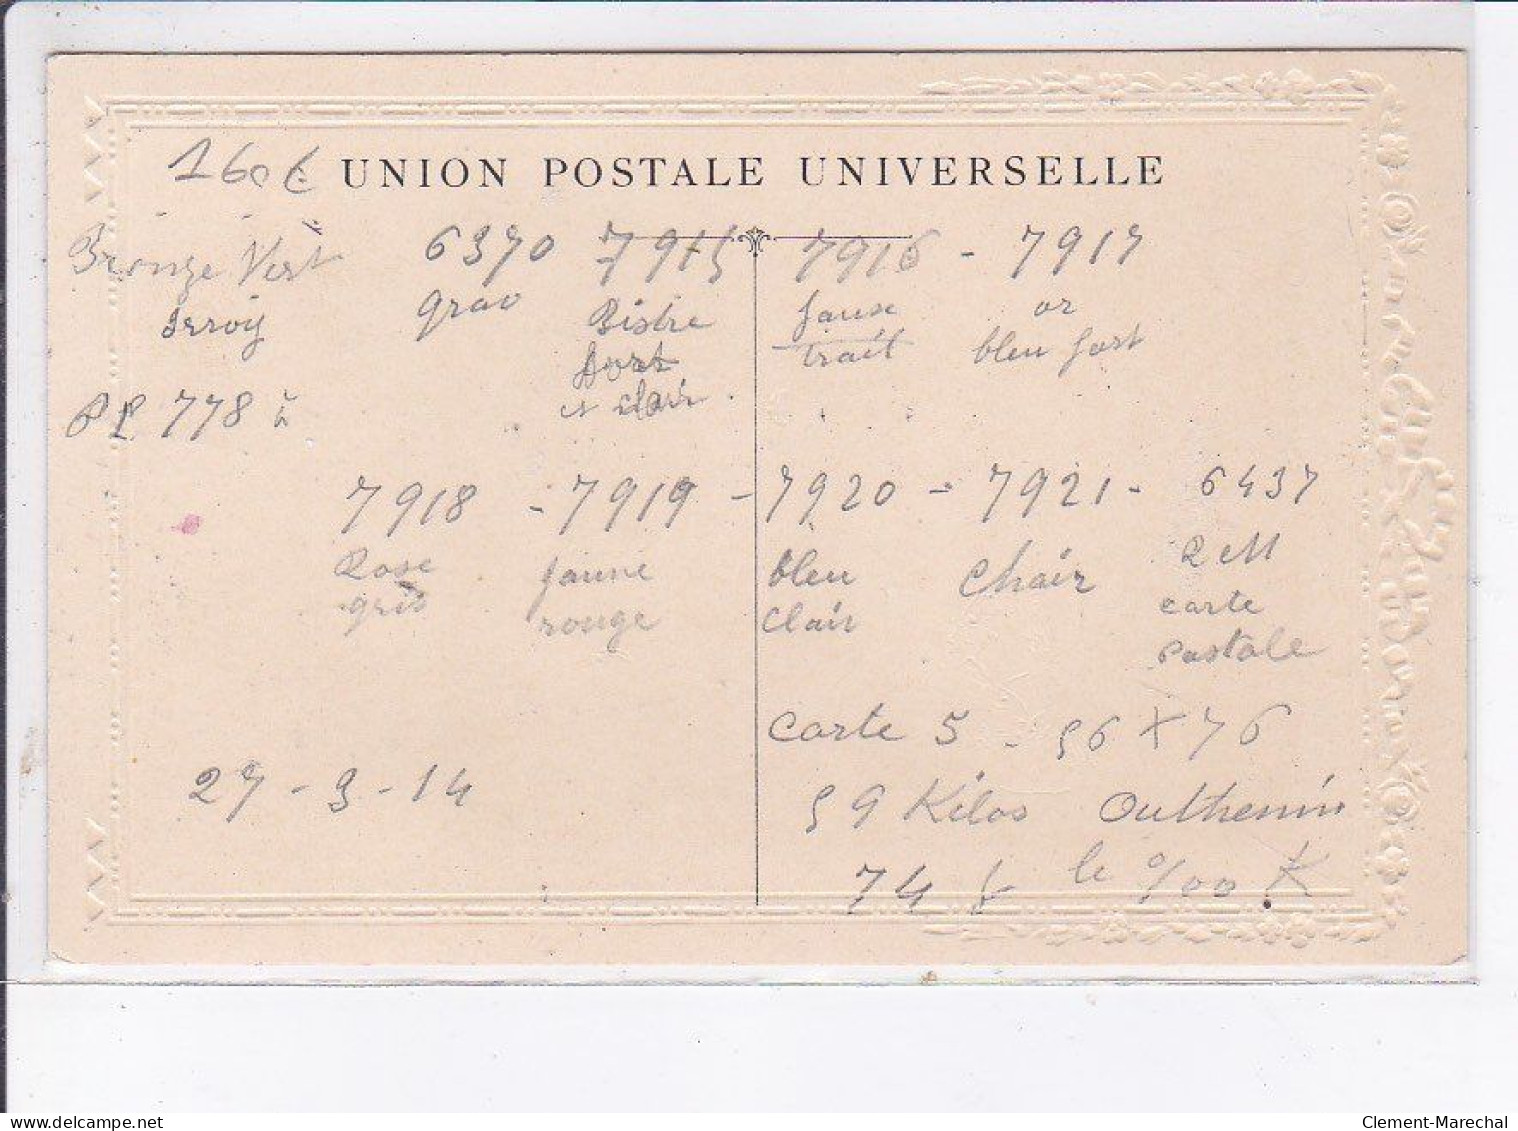 160€ UNION POSTALE UNIVERSELLE
Bronze Vert 6370 7915 7916 - 7917
grav Bistre fausse or
fort trait bleu fort
et clair.
PL 778
7918 - 7919 - 7920 - 7921 - 6437
Rose jaune bleu Chair
gris rouge clair carte
postale
carte 5 - 56 X 76
27-3-14 59 Kilos Outhenin
74 le %00 K
Clement-Marechal